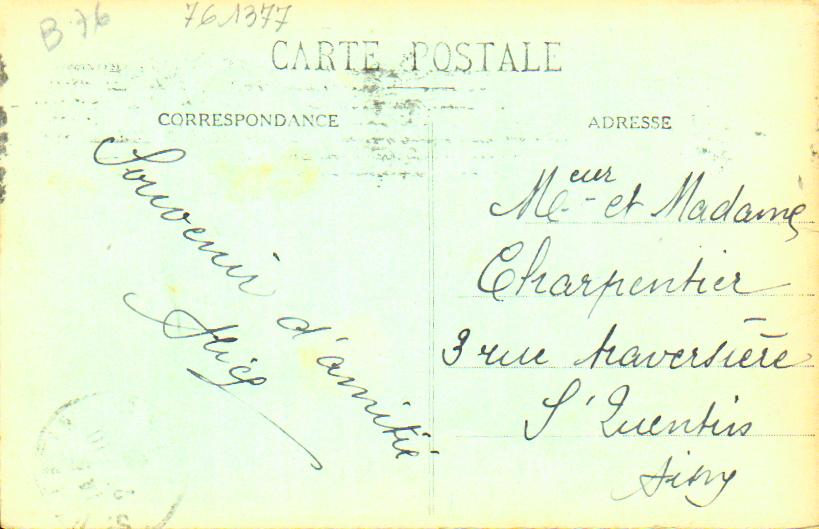 B.76
761377
CARTE POSTALE
CORRESPONDANCE
ADRESSE
Souvenir d'amitié
Alice
Mr eur et Madame
Charpentier
3 rue traversière
St Quentin
Aisne